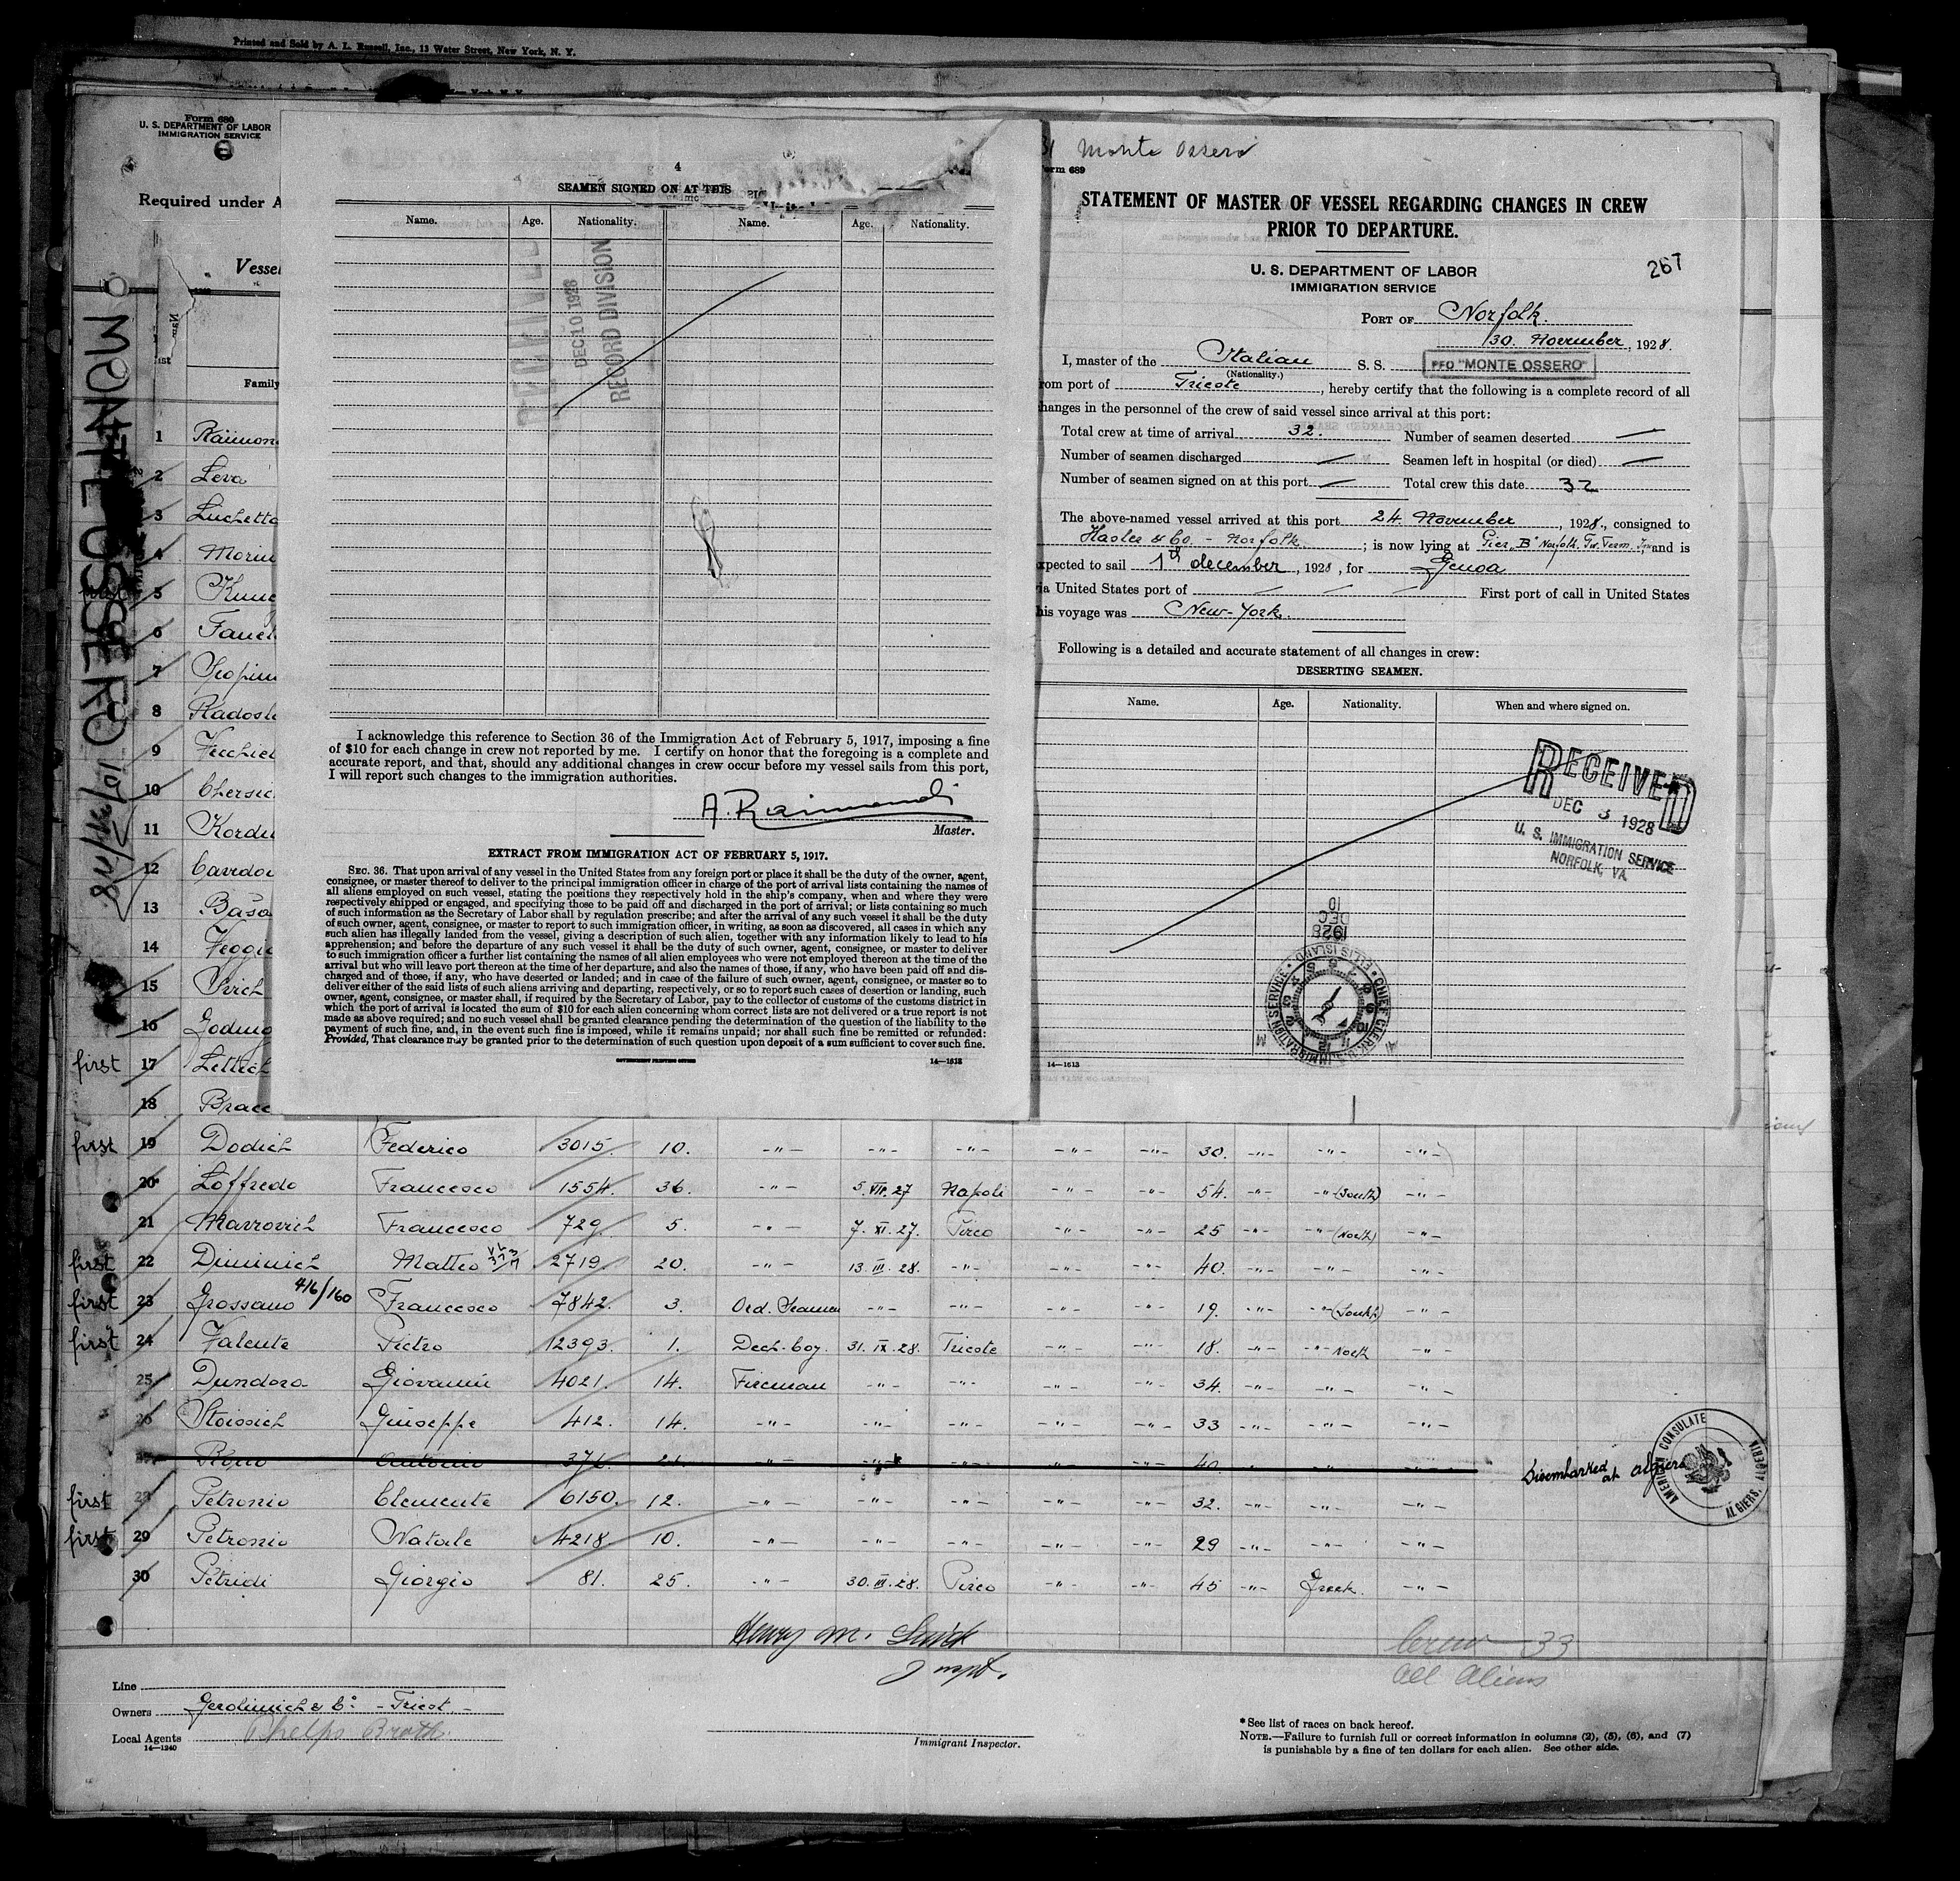 Printed and Sold by A. L. Russell, Inc., 13 Water Street, New York, N. Y.
Form 680
U. S. DEPARTMENT OF LABOR
IMMIGRATION SERVICE
Required under A
Vessel
Family
MONTE OSSERO
4
SEAMEN SIGNED ON AT THIS
Name. Age. Nationality. Name. Age. Nationality.
DEC 10 1928
RECORD DIVISION
I acknowledge this reference to Section 36 of the Immigration Act of February 5, 1917, imposing a fine
of $10 for each change in crew not reported by me. I certify on honor that the foregoing is a complete and
accurate report, and that, should any additional changes in crew occur before my vessel sails from this port,
I will report such changes to the immigration authorities.
A. Raimondi
Master.
EXTRACT FROM IMMIGRATION ACT OF FEBRUARY 5, 1917.
SEC. 36. That upon arrival of any vessel in the United States from any foreign port or place it shall be the duty of the owner, agent,
consignee, or master thereof to deliver to the principal immigration officer in charge of the port of arrival lists containing the names of
all aliens employed on such vessel, stating the positions they respectively hold in the ship's company, when and where they were
respectively shipped or engaged, and specifying those to be paid off and discharged in the port of arrival; or lists containing so much
of such information as the Secretary of Labor shall by regulation prescribe; and after the arrival of any such vessel it shall be the duty
of such owner, agent, consignee, or master to report to such immigration officer, in writing, as soon as discovered, all cases in which any
such alien has illegally landed from the vessel, giving a description of such alien, together with any information likely to lead to his
apprehension; and before the departure of any such vessel it shall be the duty of such owner, agent, consignee, or master to deliver
to such immigration officer a further list containing the names of all alien employees who were not employed thereon at the time of the
arrival but who will leave port thereon at the time of her departure, and also the names of those, if any, who have been paid off and dis-
charged and of those, if any, who have deserted or landed; and in case of the failure of such owner, agent, consignee, or master so to
deliver either of the said lists of such aliens arriving and departing, respectively, or so to report such cases of desertion or landing, such
owner, agent, consignee, or master shall, if required by the Secretary of Labor, pay to the collector of customs of the customs district in
which the port of arrival is located the sum of $10 for each alien concerning whom correct lists are not delivered or a true report is not
made as above required; and no such vessel shall be granted clearance pending the determination of the question of the liability to the
payment of such fine, and, in the event such fine is imposed, while it remains unpaid; nor shall such fine be remitted or refunded:
Provided, That clearance may be granted prior to the determination of such question upon deposit of a sum sufficient to cover such fine.
GOVERNMENT PRINTING OFFICE 14—1613
Monte Ossero
orm 689
STATEMENT OF MASTER OF VESSEL REGARDING CHANGES IN CREW
PRIOR TO DEPARTURE.
267
U. S. DEPARTMENT OF LABOR
IMMIGRATION SERVICE
PORT OF Norfolk.
30. November, 1928.
I, master of the Italian S. S. PFO "MONTE OSSERO"
(Nationality.)
rom port of Trieste, hereby certify that the following is a complete record of all
hanges in the personnel of the crew of said vessel since arrival at this port:
Total crew at time of arrival 32. Number of seamen deserted —
Number of seamen discharged — Seamen left in hospital (or died) —
Number of seamen signed on at this port — Total crew this date 32
The above-named vessel arrived at this port 24 November, 1928., consigned to
Hasler & Co. - Norfolk; is now lying at Pier "B" Norfolk. Tid. Term. and is
xpected to sail 1st december, 1928, for Genoa
ia United States port of — — — First port of call in United States
his voyage was New-York.
Following is a detailed and accurate statement of all changes in crew:
DESERTING SEAMEN.
Name. Age. Nationality. When and where signed on.
RECEIVED
DEC 3 1928
U. S. IMMIGRATION SERVICE
NORFOLK, VA
1928
DEC
10
CHIEF CLERK, U.S. IMMIGRATION SERVICE · ELLIS ISLAND ·
14—1613
1 Raimon
2 Leva
3 Luchetta
4 Morin
5
6
7
8 Radosl
9
10 Chersic
11 Kordu
12
13
14
15
16 Goding
first 17 Lettich
18 Bracc
first 19 Dodich Federico 3015. 10. -"- -"- -"- -"- -"- 30. -"- -"- -"-
20 Loffredo Francesco 1554. 36. -"- 5. VII. 27 Napoli -"- -"- 54. -"- -"- (South) -"-
21 Mavrovich Francesco 729. 5. -"- 7. XI. 27. Pireo -"- -"- 25 -"- -"- (North) -"-
first 22 Diminich Matteo 2719. 20. -"- 13. III. 28. -"- -"- -"- 40. -"- -"- -"-
first 23 Grossano 416/160 Francesco 7842. 3. Ord. Seaman -"- -"- -"- -"- 19. -"- -"- (South) -"-
first 24 Valente Pietro 12393. 1. Deck-boy. 31. IX. 28. Trieste -"- -"- 18. -"- -"- North -"-
25 Dundora Giovanni 4021. 14. Fireman -"- -"- -"- -"- 34. -"- -"- -"-
26 Stoissich Giuseppe 412. 14. -"- -"- -"- -"- -"- 33 -"- -"- -"-
Antonio 40. Disembarked at Algiers
AMERICAN CONSULATE ALGIERS, ALGERIA
first 28 Petronio Clemente 6150. 12. -"- -"- -"- -"- -"- 32. -"- -"- -"-
first 29 Petronio Natale 4218. 10. -"- -"- -"- -"- -"- 29 -"- -"- -"-
30 Petridi Giorgio 81. 25. -"- 30. III. 28. Pireo -"- -"- 45 -"- Greek. -"-
Henry M.
Inspt.
Crew 33
All Aliens
Line
Owners Gerolimich & Co. - Triest. -
Local Agents Phelps Broth.
14—1240
Immigrant Inspector.
*See list of races on back hereof.
NOTE.—Failure to furnish full or correct information in columns (2), (5), (6), and (7)
is punishable by a fine of ten dollars for each alien. See other side.